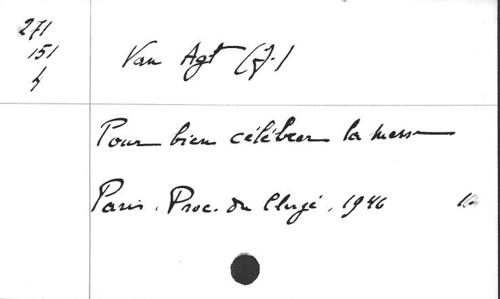 271
151
4
Van Agt (J.)
Pour bien célébrer la messe
Paris. Proc. du Clergé, 1946